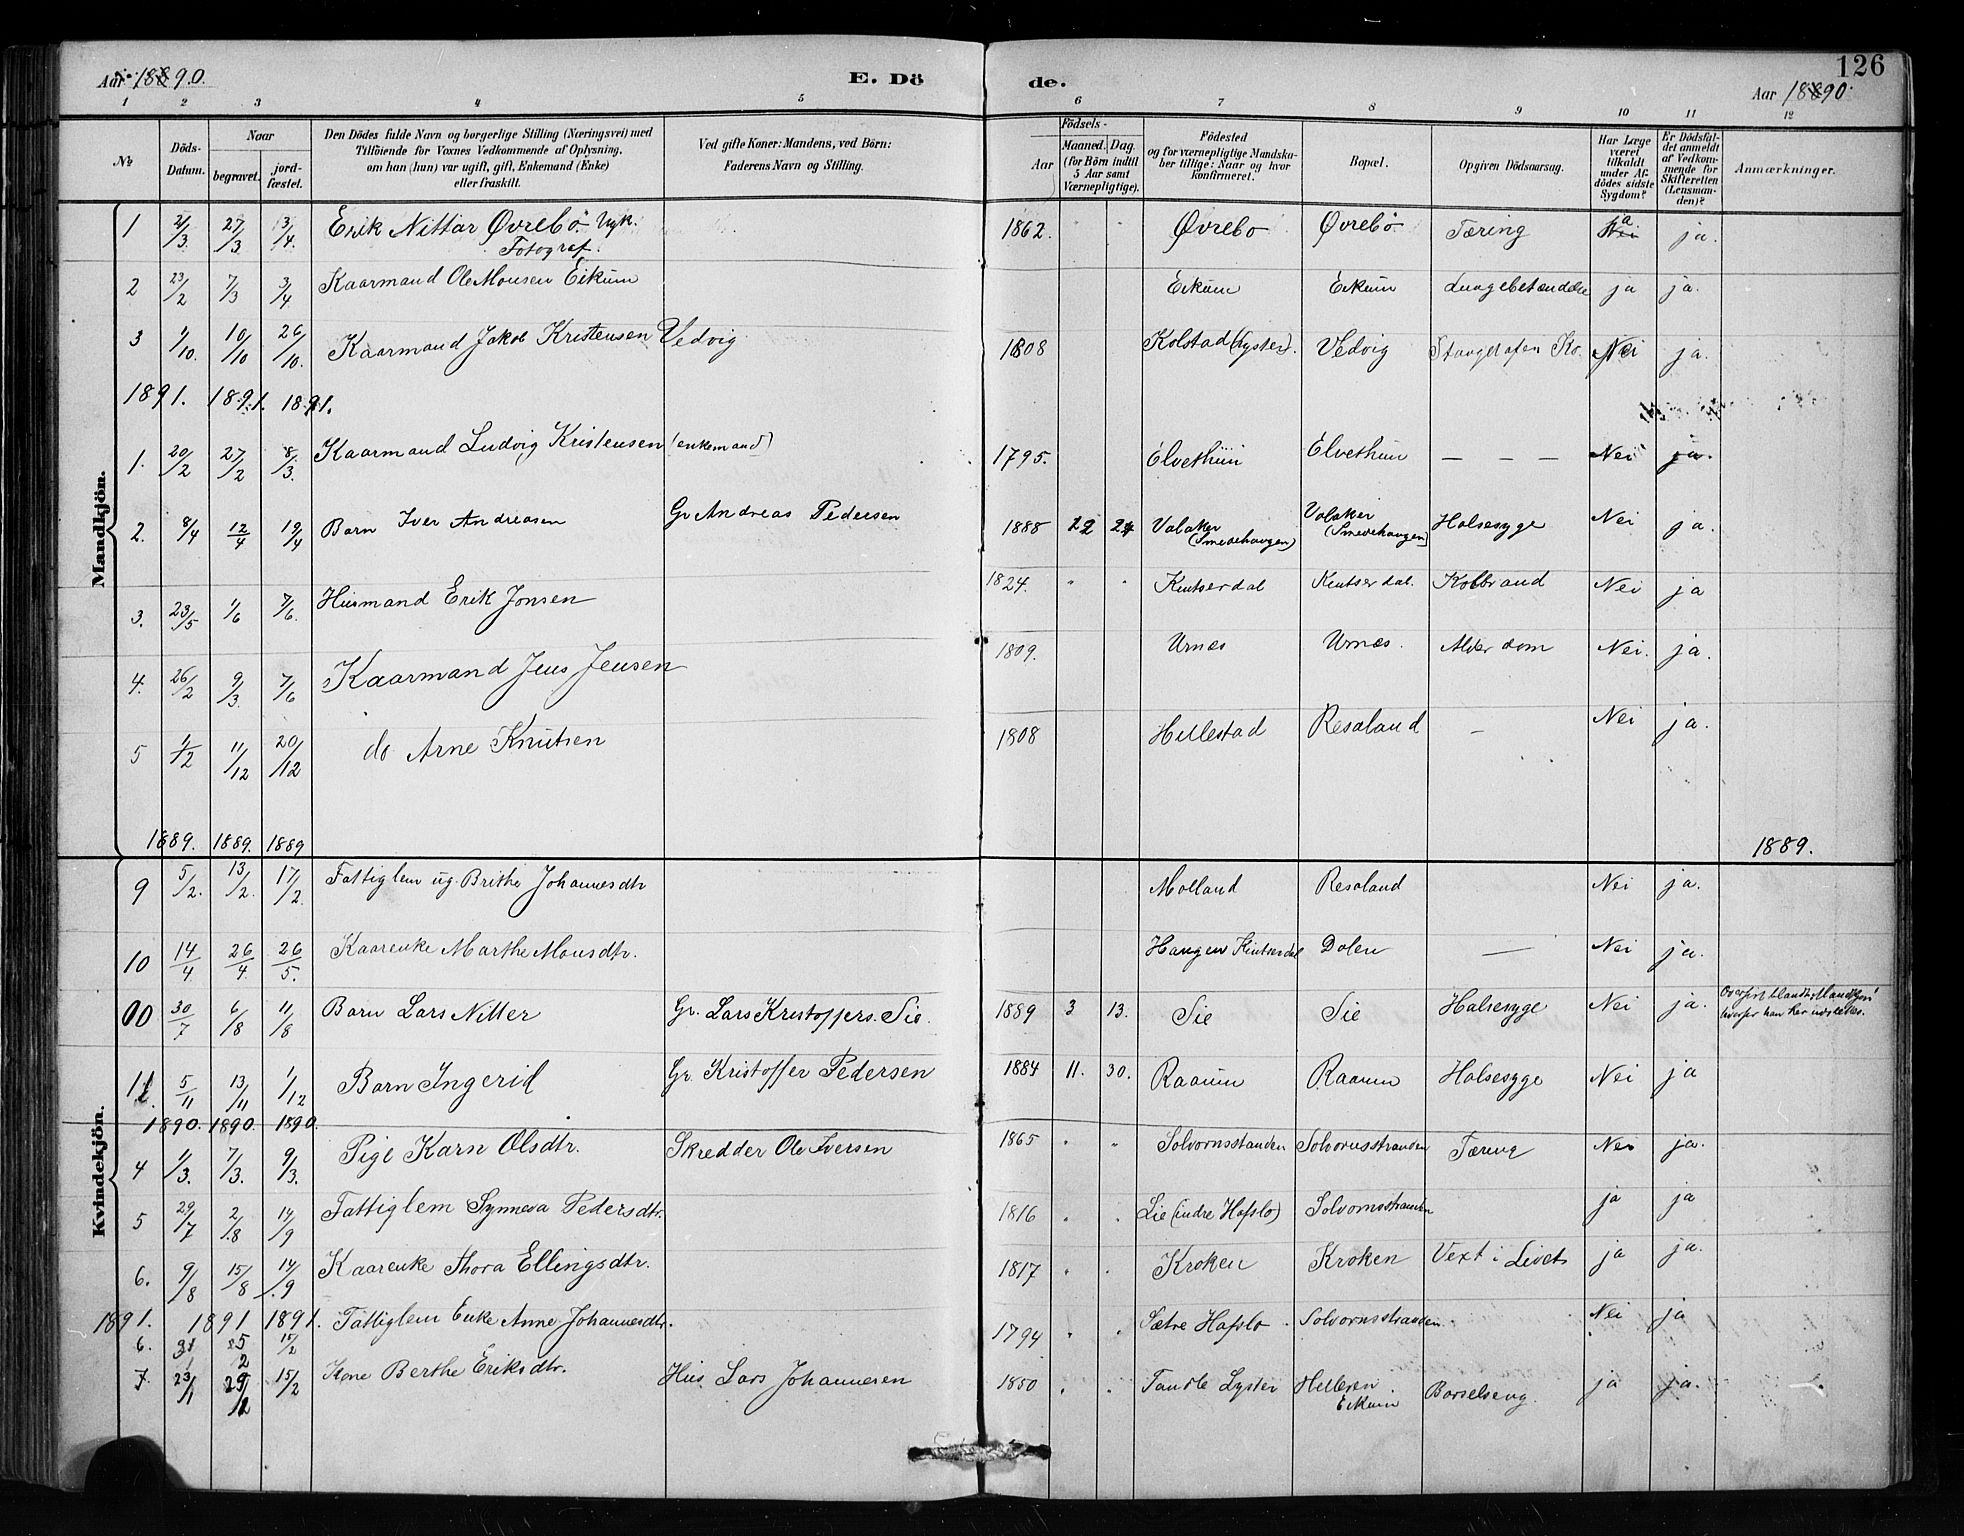 Aar 1890.
E. Dö
de.
126
Aar 1890.
1 2 3 4 5 6 7 8 9 10 11 12
No.
Döds-Datum.
Naar
begravet.
jordfæstet.
Den Dödes fulde Navn og borgerlige Stilling (Næringsvei) med
Tilföiende for Voxnes Vedkommende af Oplysning,
om han (hun) var ugift, gift, Enkemand (Enke)
eller fraskilt.
Ved gifte Koner: Mandens, ved Börn:
Faderens Navn og Stilling.
Födsels-
Aar
Maaned. Dag.
(for Börn indtil
5 Aar samt
Værnepligtige).
Födested
og for værnepligtige Mandskaber tillige: Naar og hvor
konfirmeret.
Bopæl.
Opgiven Dödsaarsag.
Har Læge
været
tilkaldt
under Afdödes sidste
Sygdom?
Er Dödsfaldet anmeldt
af Vedkommende for
Skifteretten
(Lensmanden)?
Anmærkninger.
Mandkjön.
1 2/3 27/3 3/4 Erik Nitter Øvrebö Ugk. 1862. " " Øvrebö Øvrebö Tæring ja ja.
Fotograf.
2 23/2 7/3 3/4 Kaarmand Ole Monsen Eikum Eikum Eikum Lungebetændelse ja ja.
3 1/10. 10/10 26/10. Kaarmand Jakob Kristensen Vedvig 1808 Kolstad (Lyster). Vedvig Nei ja.
1891. 1891. 1891.
1. 20/2 27/2 8/3. Kaarmand Ludvig Kristensen (enkemand) 1795. Elvethun Elvethun — — — Nei ja.
2. 8/4 12/4 19/4 Barn Iver Andreasen Gr Andreas Pedersen 1888 22 24 Valaker (Smedehaugen) Valaker (Smedehaugen) Halsesyge Nei ja.
3. 23/5 1/6 7/6. Husmand Erik Jonsen 1824. " " Kintserdal Kintserdal. Kolbrand Nei ja
4. 26/2 9/3. 7/6 Kaarmand Jens Jensen 1809. Urnæs Urnæs. Alderdom Nei. ja.
5 1/2 11/12 20/12 do Arne Knutsen 1808 Hillestad Resaland — Nei ja.
1889. 1889. 1889 1889.
Kvindekjön.
9 5/2. 13/2. 17/2. Fattiglem ug. Brithe Johannesdtr Molland Resaland Nei ja.
10 14/4 26/4. 26/5. Kaarenke Marthe Monsdtr. Haugen Kintserdal Dalen — Nei ja.
00 30/7 6/8 11/8 Barn Lars Nitter Gr. Lars Kristoffers. Sie. 1889 3 13. Sie Sie Halsesyge Nei ja. Overført blandt Mandkjön hvorfor han her udslettes.
11. 5/11 13/11 1/12 Barn Ingerid Gr. Kristoffer Pedersen 1884 11. 30. Raaum Raaum Halsesyge Nei ja
1890. 1890. 1890.
4 1/3. 7/3. 9/3. Pige Karn Olsdtr. Skredder Ole Iversen 1865 " " Solvornsstranden Solvornsstranden Tæring Nei ja.
5 29/7 2/8 14/9 Fattiglem Synneva Pedersdtr. 1816 " " Lie (indre Hafslo) Solvornsstranden ja ja
6. 9/8 15/8 14/9 Kaarenke Thora Ellingsdtr. 1817 " " Kroken Kroken Vext i Livet ja ja.
1891. 1891 1891. Fattiglem Enke Anne Johannesdtr. 1794 " " Sætre Hafslo Solvornsstranden. Nei ja
6. 31/1 25/2 15/2
7. 23/1 29/12 15/2 Kone Berthe Eriksdtr. Hus Lars Johannesen 1850 " " Tandle Lyster Hilleren Eikum Barselseng. ja ja.